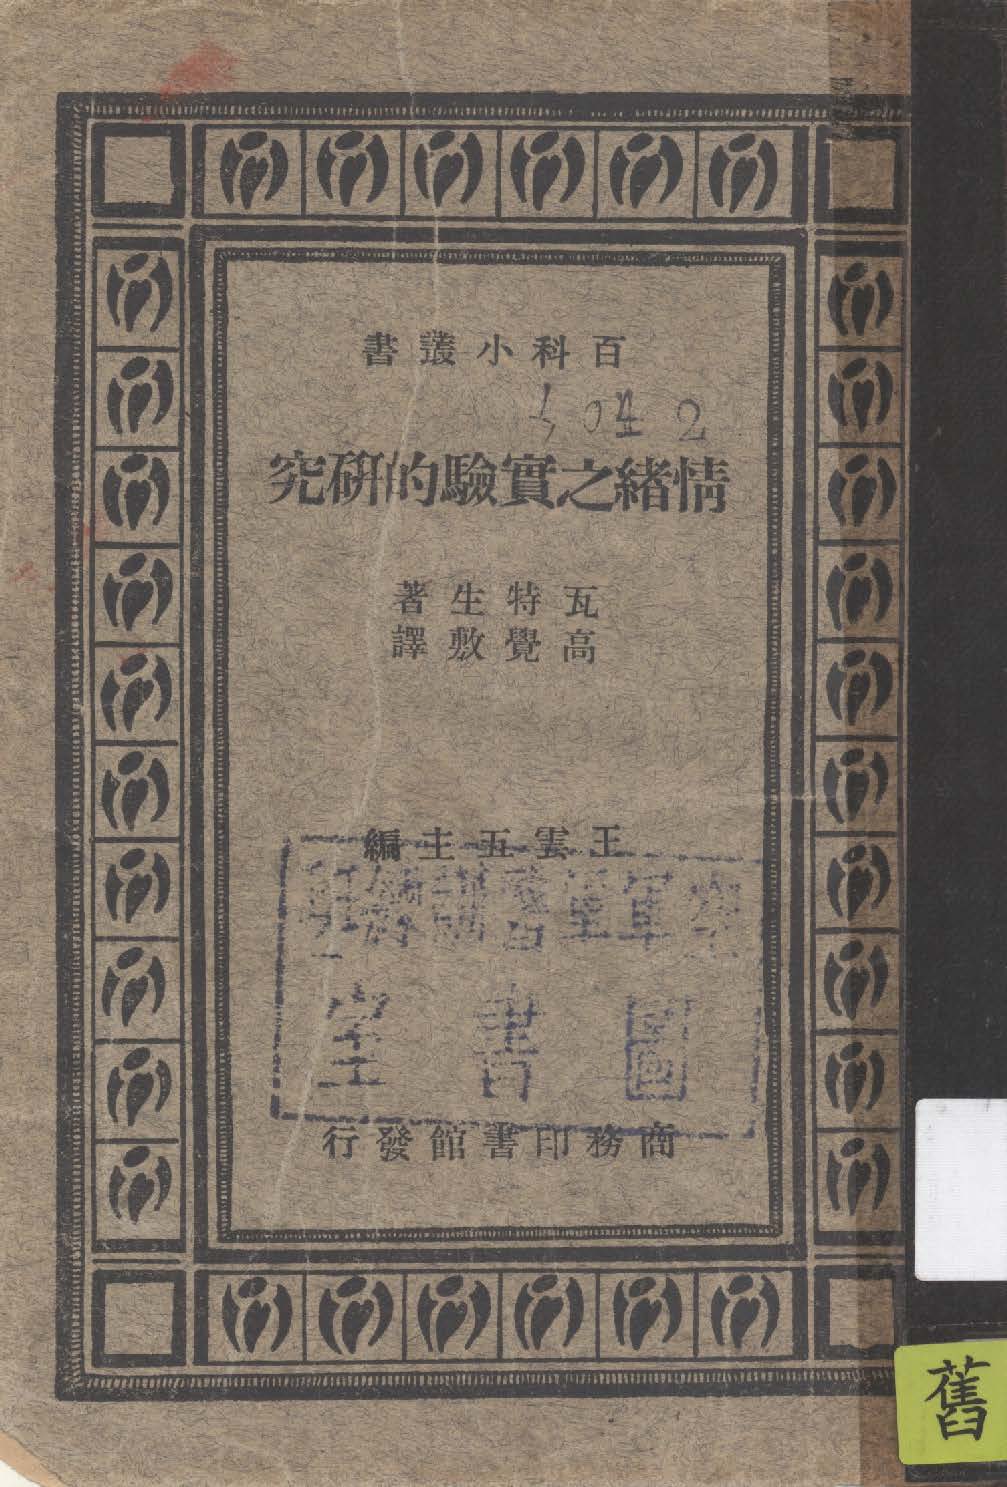 百科小叢書
情緒之實驗的研究
瓦特生著
高覺敷譯
王雲五主編
圖書室
商務印書館發行
舊